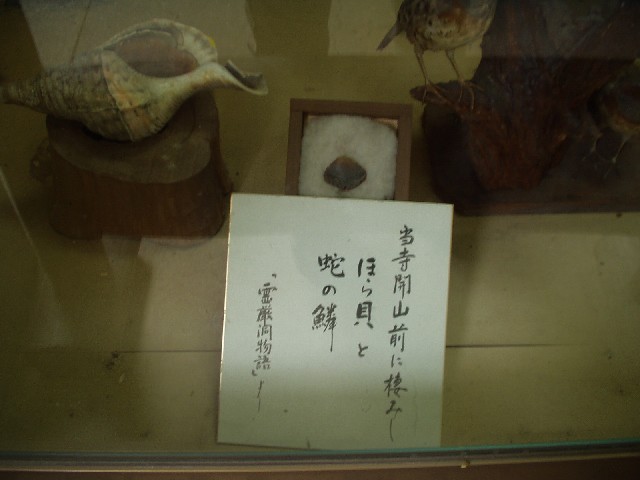 当寺開山前に棲みし
ほら貝と
蛇の鱗
「霊巌洞物語」より